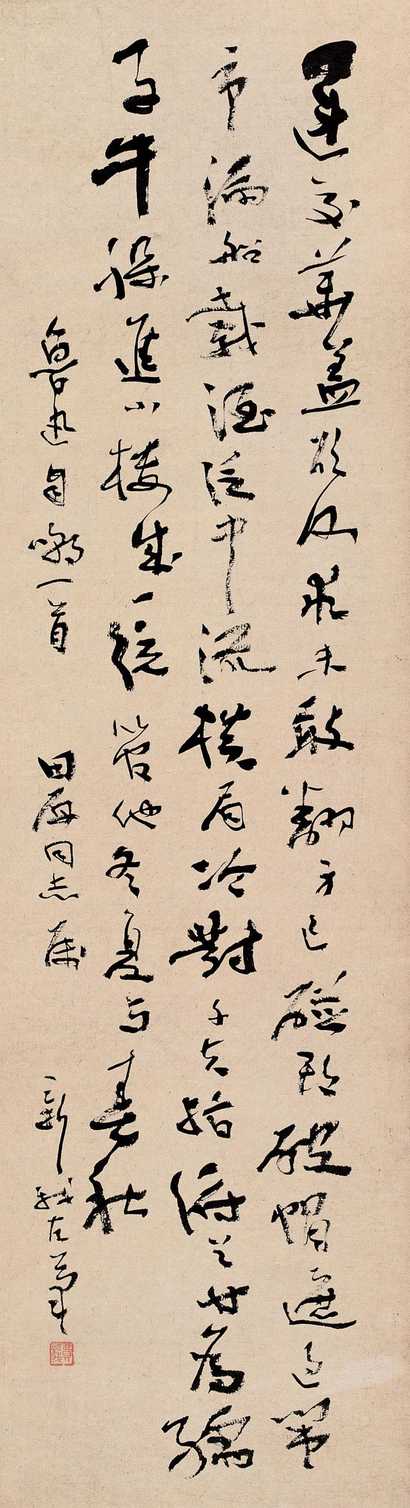 運交華蓋欲何求未敢翻身已碰頭破帽遮過鬧
市漏船載酒泛中流橫眉冷對千夫指俯首甘為孺
子牛躲進小樓成一統管他冬夏与春秋
魯迅自嘲一首 田原同志属 新我左筆